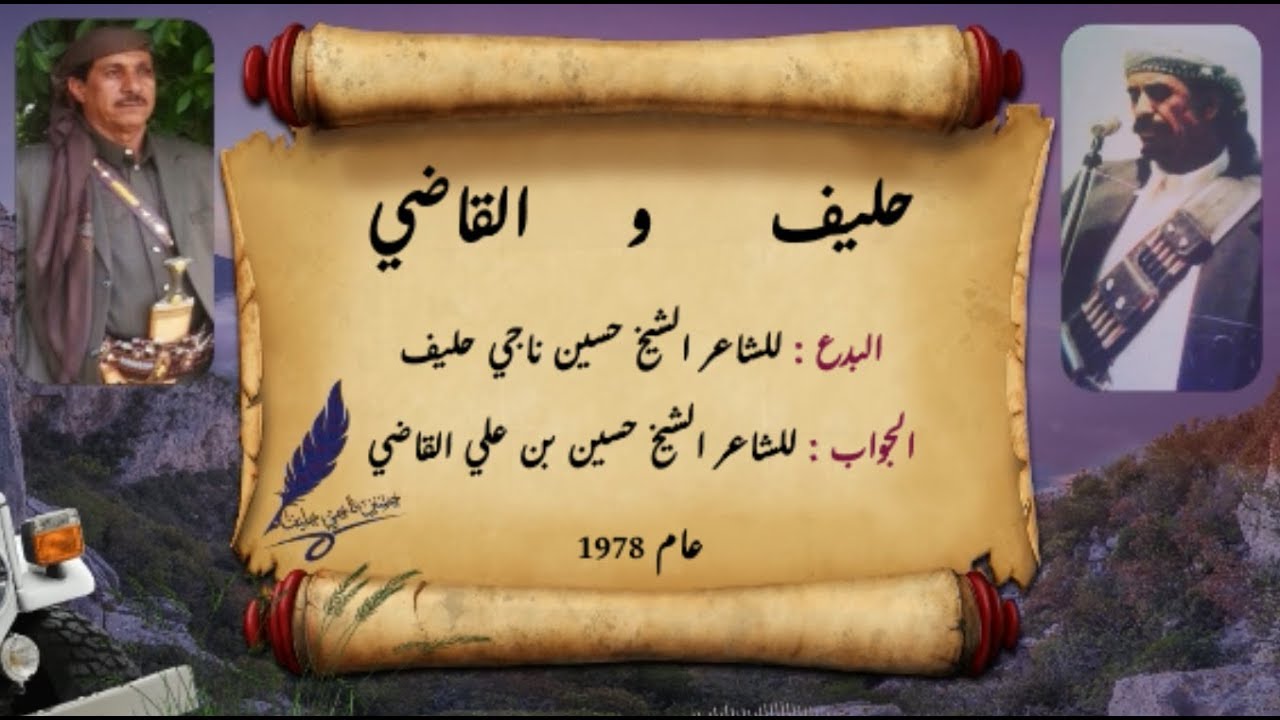 حليف و القاضي
البدع : للشاعر الشيخ حسين ناجي حليف
الجواب : للشاعر الشيخ حسين بن علي القاضي
حسين ناجي حليف
عام 1978